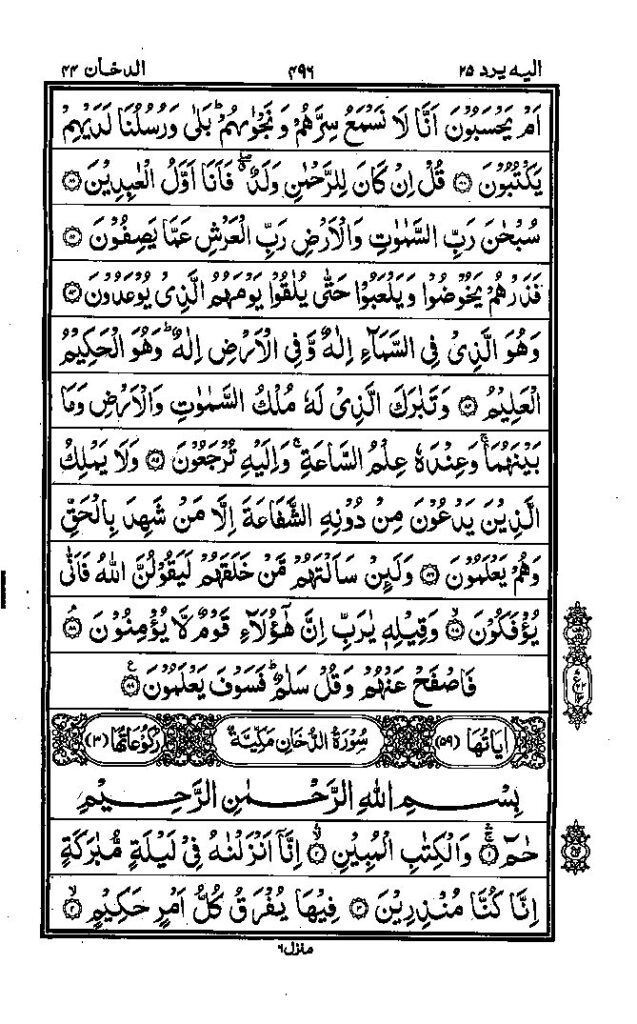 الیه یرد ۲۵ ۴۹۶ الدخان ۴۴
اَمْ يَحْسَبُوْنَ اَنَّا لَا نَسْمَعُ سِرَّهُمْ وَ نَجْوٰىهُمْ ؕ بَلٰى وَرُسُلُنَا لَدَيْهِمْ
يَكْتُبُوْنَ ۝۸۰ قُلْ اِنْ كَانَ لِلرَّحْمٰنِ وَلَدٌ ۖۗ فَاَنَا اَوَّلُ الْعٰبِدِيْنَ ۝۸۱
سُبْحٰنَ رَبِّ السَّمٰوٰتِ وَالْاَرْضِ رَبِّ الْعَرْشِ عَمَّا يَصِفُوْنَ ۝۸۲
فَذَرْهُمْ يَخُوْضُوْا وَيَلْعَبُوْا حَتّٰى يُلٰقُوْا يَوْمَهُمُ الَّذِىْ يُوْعَدُوْنَ ۝۸۳
وَهُوَ الَّذِىْ فِى السَّمَآءِ اِلٰهٌ وَّفِى الْاَرْضِ اِلٰهٌ ؕ وَهُوَ الْحَكِيْمُ
الْعَلِيْمُ ۝۸۴ وَتَبٰرَكَ الَّذِىْ لَهٗ مُلْكُ السَّمٰوٰتِ وَالْاَرْضِ وَمَا
بَيْنَهُمَا ۚ وَعِنْدَهٗ عِلْمُ السَّاعَةِ ۚ وَاِلَيْهِ تُرْجَعُوْنَ ۝۸۵ وَلَا يَمْلِكُ
الَّذِيْنَ يَدْعُوْنَ مِنْ دُوْنِهِ الشَّفَاعَةَ اِلَّا مَنْ شَهِدَ بِالْحَقِّ
وَهُمْ يَعْلَمُوْنَ ۝۸۶ وَلَئِنْ سَاَلْتَهُمْ مَّنْ خَلَقَهُمْ لَيَقُوْلُنَّ اللّٰهُ فَاَنّٰى
يُؤْفَكُوْنَ ۝۸۷ وَقِيْلِهٖ يٰرَبِّ اِنَّ هٰٓؤُلَآءِ قَوْمٌ لَّا يُؤْمِنُوْنَ ۝۸۸
فَاصْفَحْ عَنْهُمْ وَقُلْ سَلٰمٌ ؕ فَسَوْفَ يَعْلَمُوْنَ ۝۸۹
اٰيَاتُهَا (۵۹) سُوْرَةُ الدُّخَانِ مَكِّيَّةٌ رُكُوْعَاتُهَا (۳)
بِسْمِ اللّٰهِ الرَّحْمٰنِ الرَّحِيْمِ
حٰمٓ ۝۱ وَالْكِتٰبِ الْمُبِيْنِ ۝۲ اِنَّاۤ اَنْزَلْنٰهُ فِىْ لَيْلَةٍ مُّبٰرَكَةٍ
اِنَّا كُنَّا مُنْذِرِيْنَ ۝۳ فِيْهَا يُفْرَقُ كُلُّ اَمْرٍ حَكِيْمٍ ۝۴
منزل۶